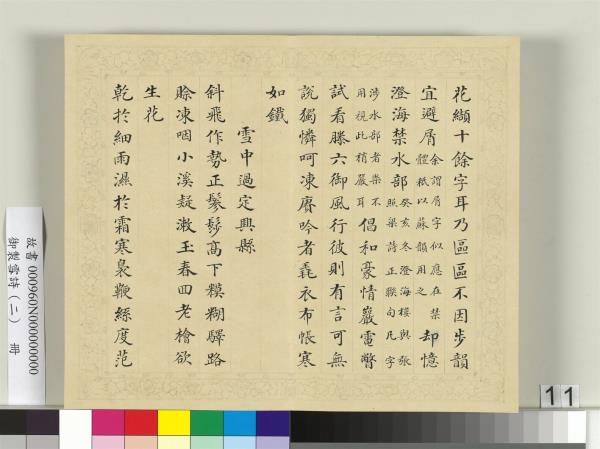 花纈十餘字耳乃區區不因步韻
宜避屑
余謂屑字似應在禁
體祗以蘇韻用之
却憶
澄海禁水部
癸亥冬澄海樓與張
照梁詩正聯句凡字
涉水部者槩不
用視此稍嚴耳
倡和豪情巖電瞥
試看滕六御風行彼則有言可無
說獨憐呵凍賡吟者毳衣布帳寒
如鐵
雪中過定興縣
斜飛作勢正鬖髿高下糢糊驛路
賒凍咽小溪疑漱玉春回老檜欲
生花
乾於細雨濕於霜寒裊鞭絲度范
故書 000960N000000000
御製雪詩(二) 冊
11